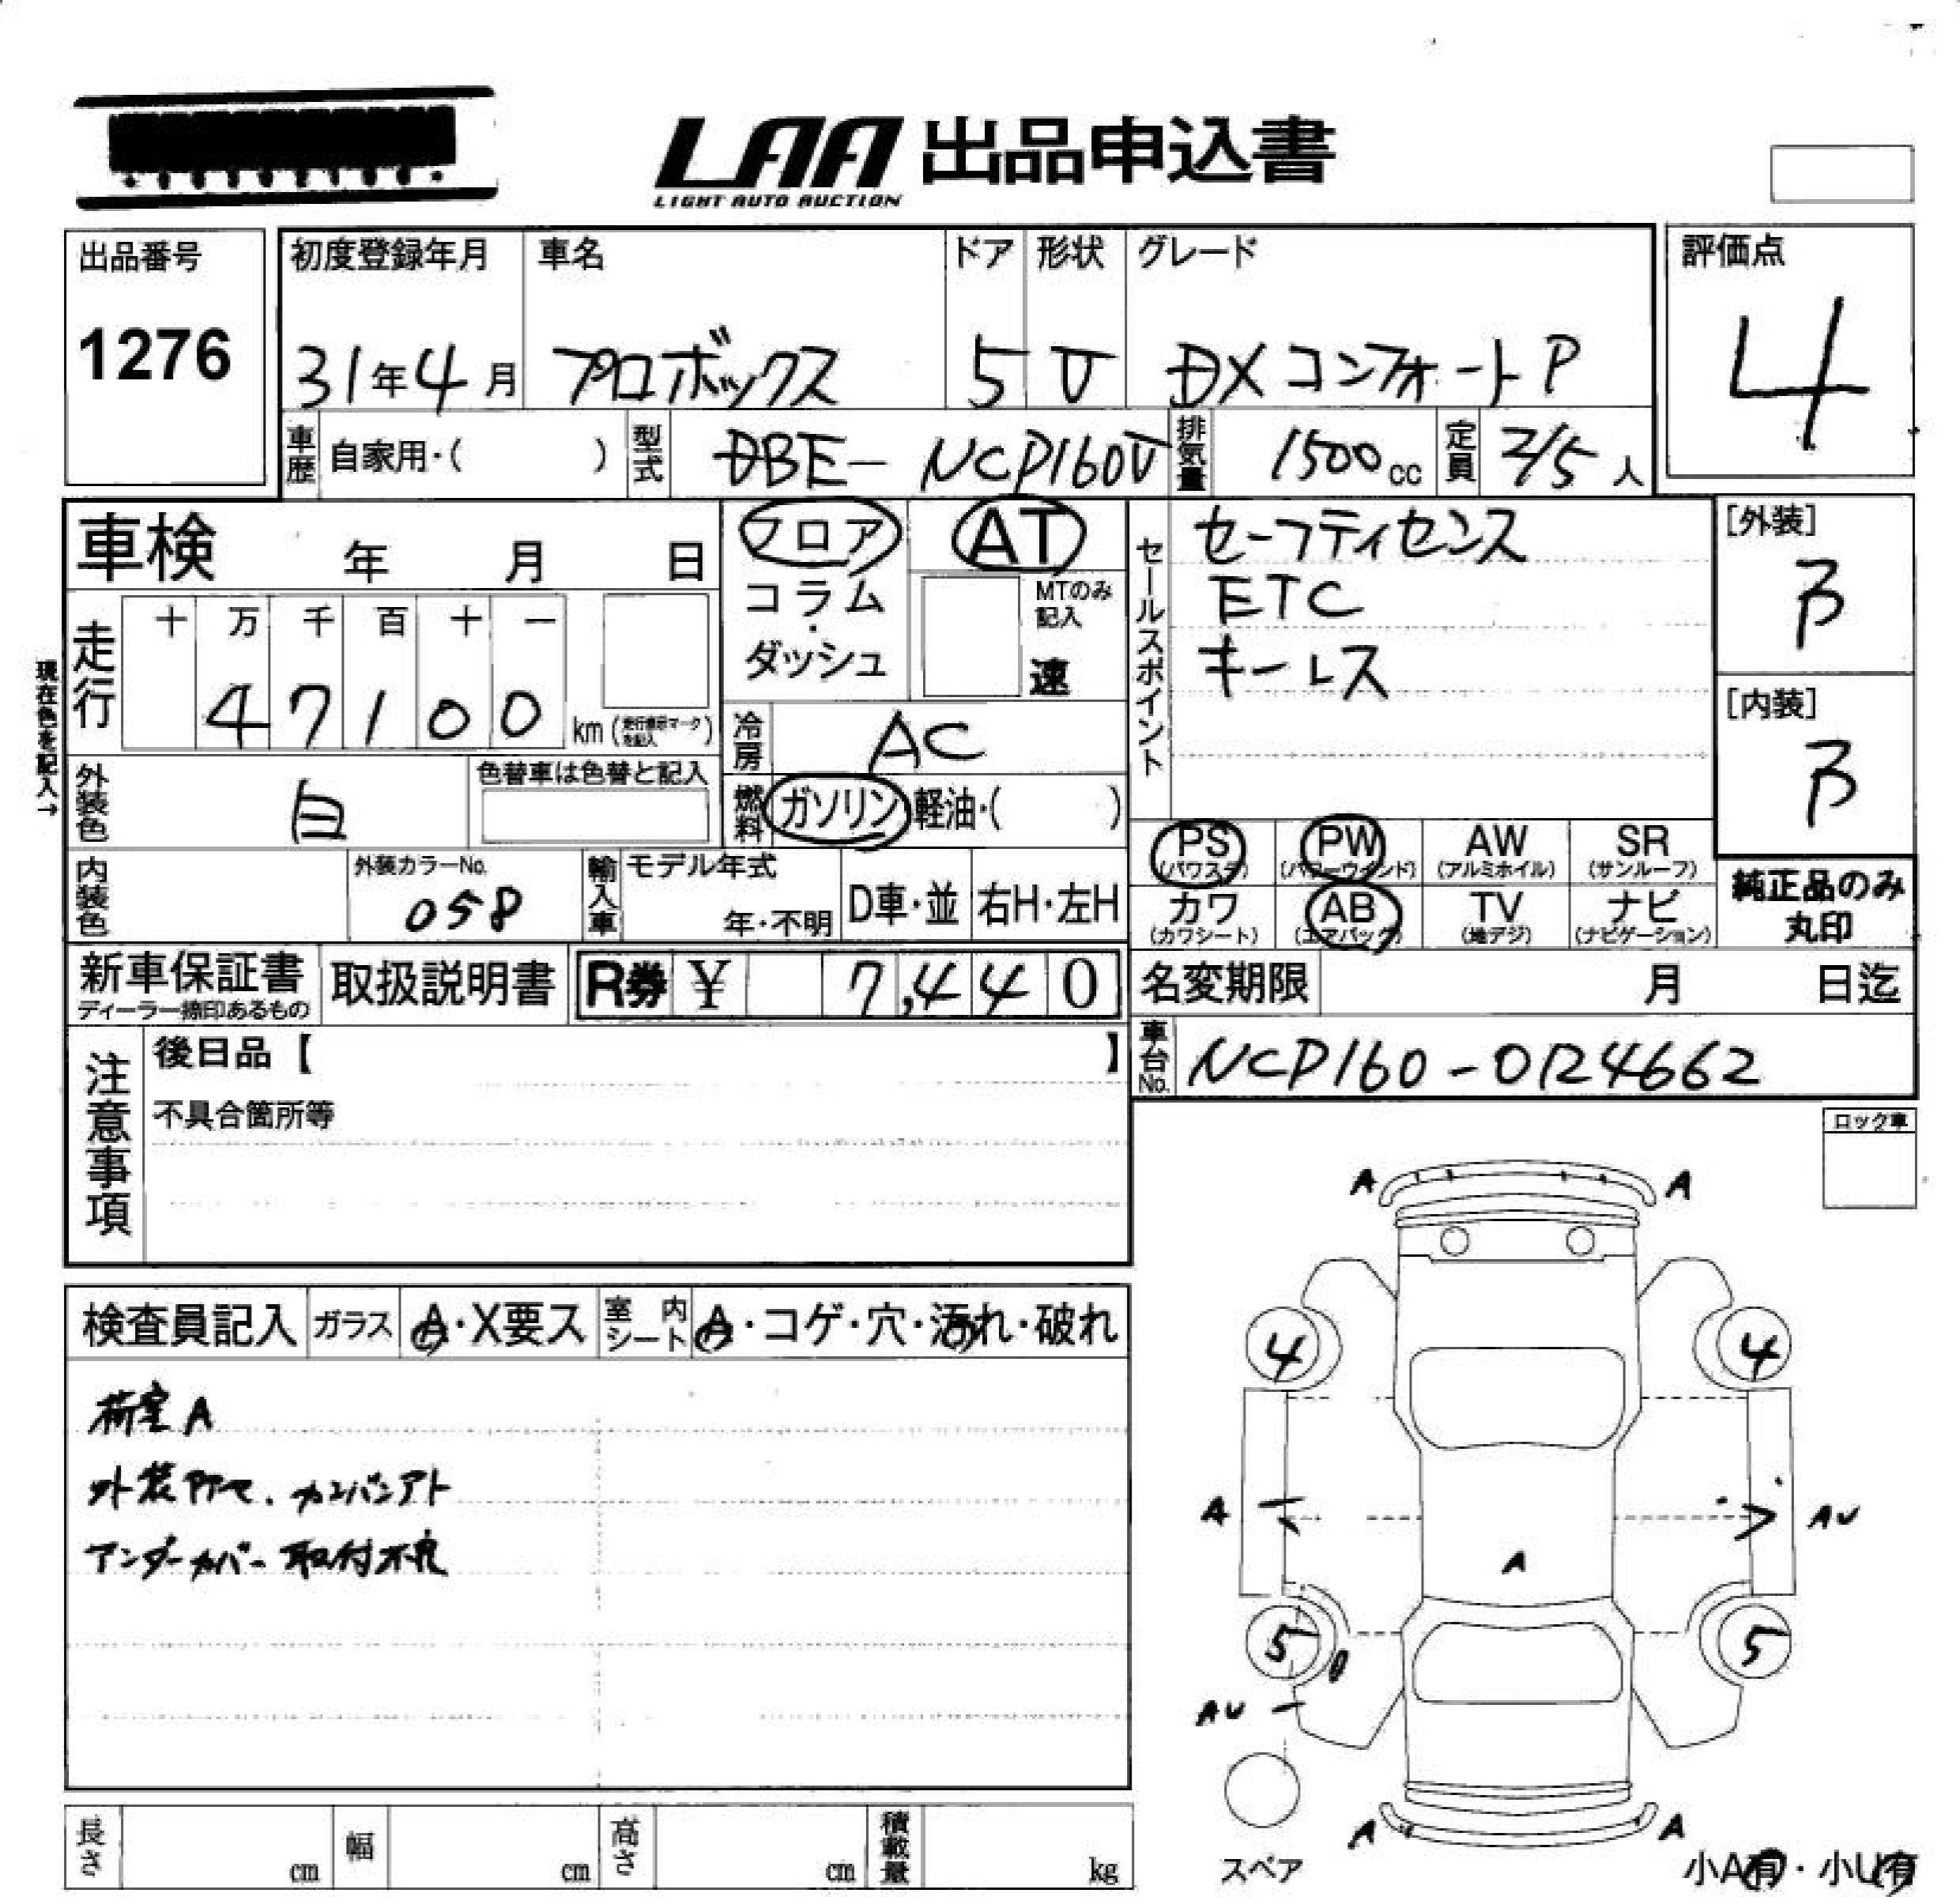 LAA 出品申込書
LIGHT AUTO AUCTION
出品番号
1276
初度登録年月 車名 ドア 形状 グレード
31年4月 プロボックス 5 V DXコンフォートP
評価点
4
車歴 自家用・( ) 型式 DBE- NCP160V 排気量 1500cc 定員 2/5人
車検 年 月 日
フロア AT
コラム・ダッシュ
MTのみ記入
速
セールスポイント
セーフティセンス
ETC
キーレス
[外装]
B
[内装]
B
現在色を記入→
走行 十 万 千 百 十 一
47100 km(走行表示マークを記入)
冷房 AC
外装色 白 色替車は色替と記入
燃料 ガソリン 軽油・( )
PS (パワステ) PW (パワーウインド) AW (アルミホイル) SR (サンルーフ)
カワ (カワシート) AB (エアバック) TV (地デジ) ナビ (ナビゲーション)
純正品のみ丸印
内装色 外装カラーNo. 058
輸入車 モデル年式 年・不明 D車・並 右H・左H
新車保証書 ディーラー捺印あるもの 取扱説明書 R券 ¥ 7,440
名変期限 月 日迄
車台No. NCP160-0124662
注意事項
後日品【 】
不具合箇所等
ロック車
検査員記入 ガラス A・X要ス 室内シート A・コゲ・穴・汚れ・破れ
荷室A
外装所々、カンバンアト
アンダーカバー取付不良
A A
4 4
A AU
A
5 5
AU
A A
スペア
小A有・小U有
長さ cm 幅 cm 高さ cm 積載量 kg